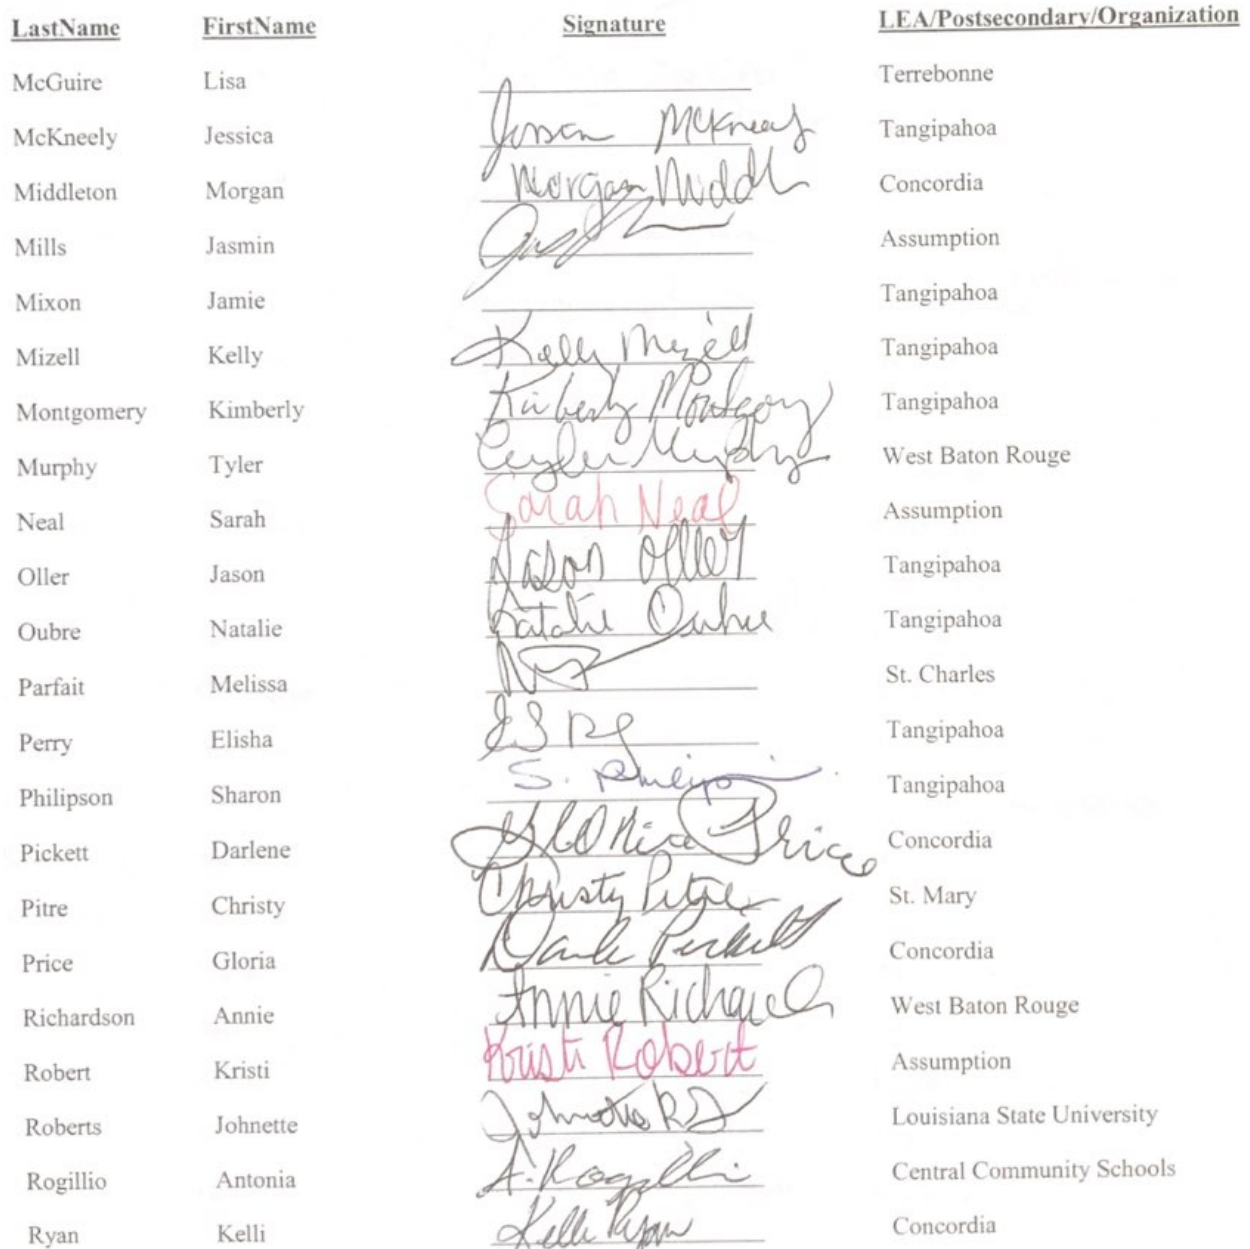 LastName FirstName Signature LEA/Postsecondary/Organization
McGuire Lisa Terrebonne
McKneely Jessica McKneely Tangipahoa
Middleton Morgan Morgan Middl Concordia
Mills Jasmin Assumption
Mixon Jamie Tangipahoa
Mizell Kelly Kelly Mizell Tangipahoa
Montgomery Kimberly Kimberly Montgomery Tangipahoa
Murphy Tyler Tyler Murphy West Baton Rouge
Neal Sarah Sarah Neal Assumption
Oller Jason Jason Oller Tangipahoa
Oubre Natalie Natalie Oubre Tangipahoa
Parfait Melissa St. Charles
Perry Elisha Tangipahoa
Philipson Sharon S. Tangipahoa
Pickett Darlene Gloria Price Concordia
Pitre Christy Christy Pitre St. Mary
Price Gloria Pickett Concordia
Richardson Annie Annie Concordia West Baton Rouge
Robert Kristi Kristi Robert Assumption
Roberts Johnette Johnette Louisiana State University
Rogillio Antonia A. Rogillio Central Community Schools
Ryan Kelli Kelli Ryan Concordia